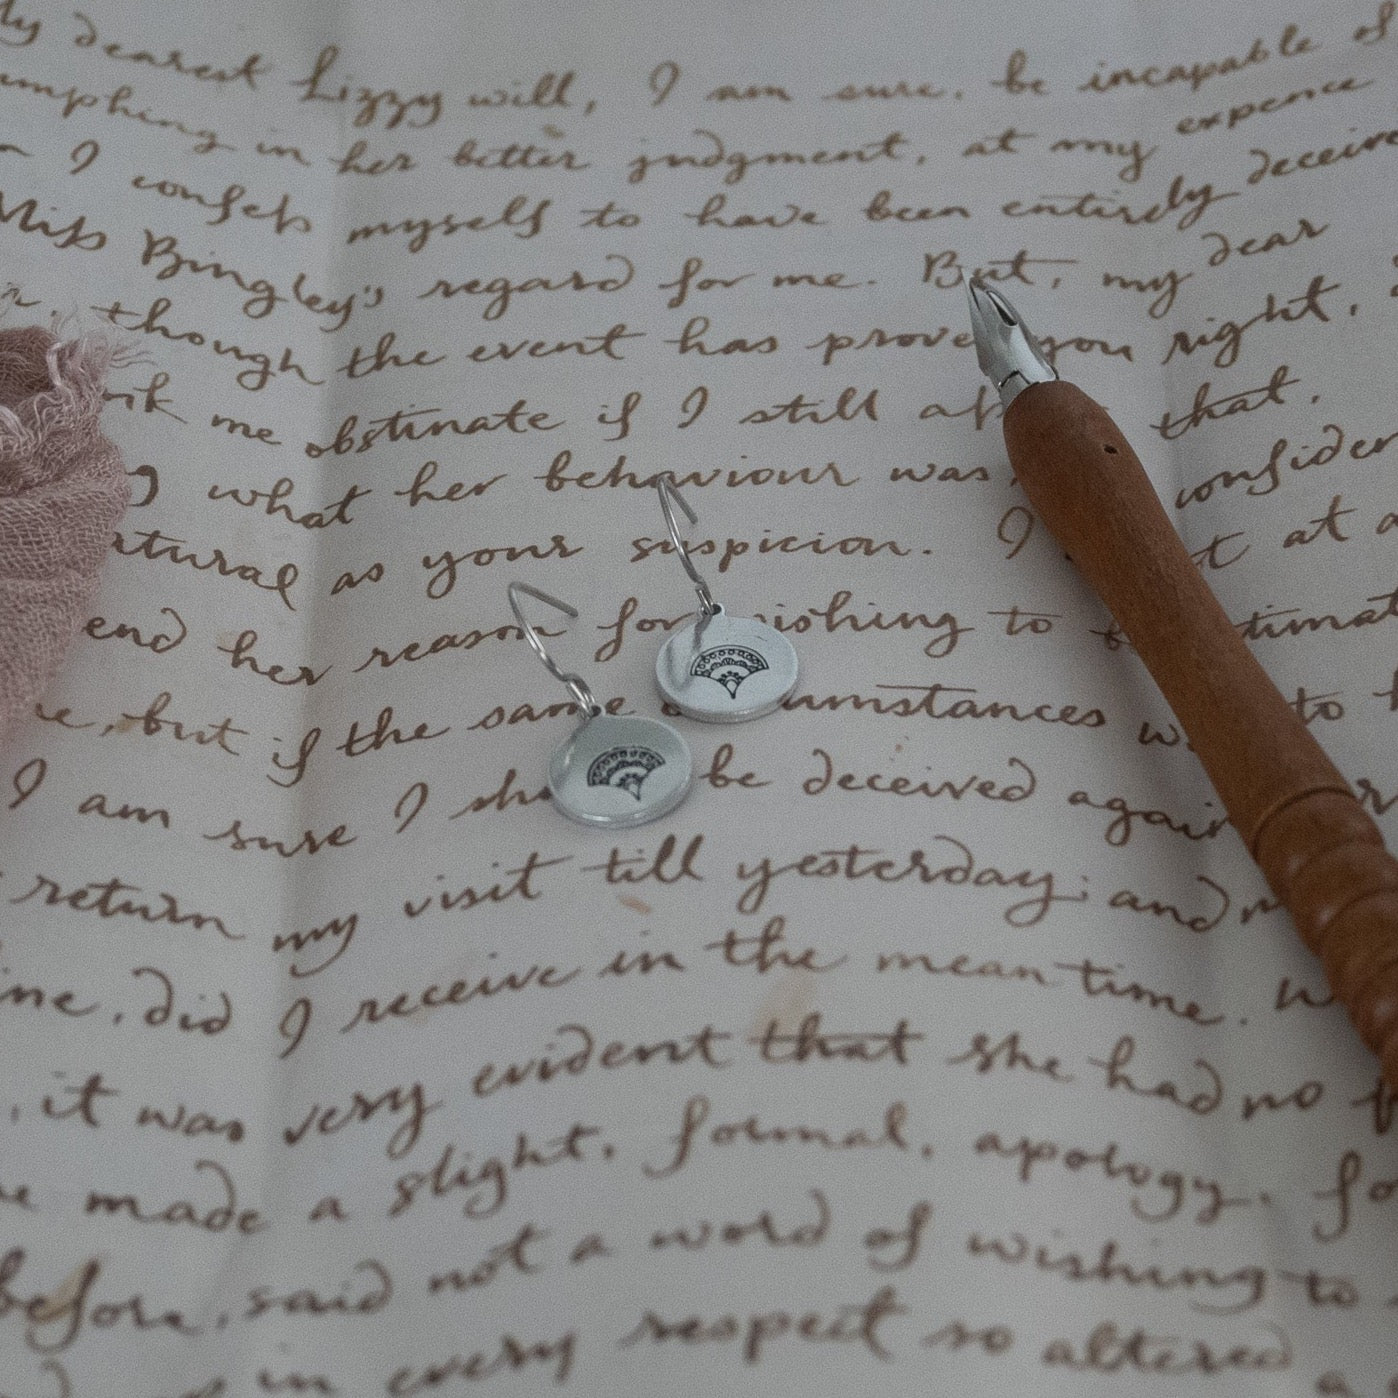 dearest Lizzy will, I am sure, be incapable of
in her better judgment, at my expence
I confess myself to have been entirely
Miss Bingley's regard for me. But, my dear
though the event has prove you right,
me obstinate if I still that,
what her behaviour was,
as your suspicion. I at
her reason for to
but if the same
I am sure I be deceived again
return my visit till yesterday; and
did I receive in the mean time. W
it was very evident that she had no
made a slight, formal, apology,
before, said not a word of wishing to
in every respect so altered